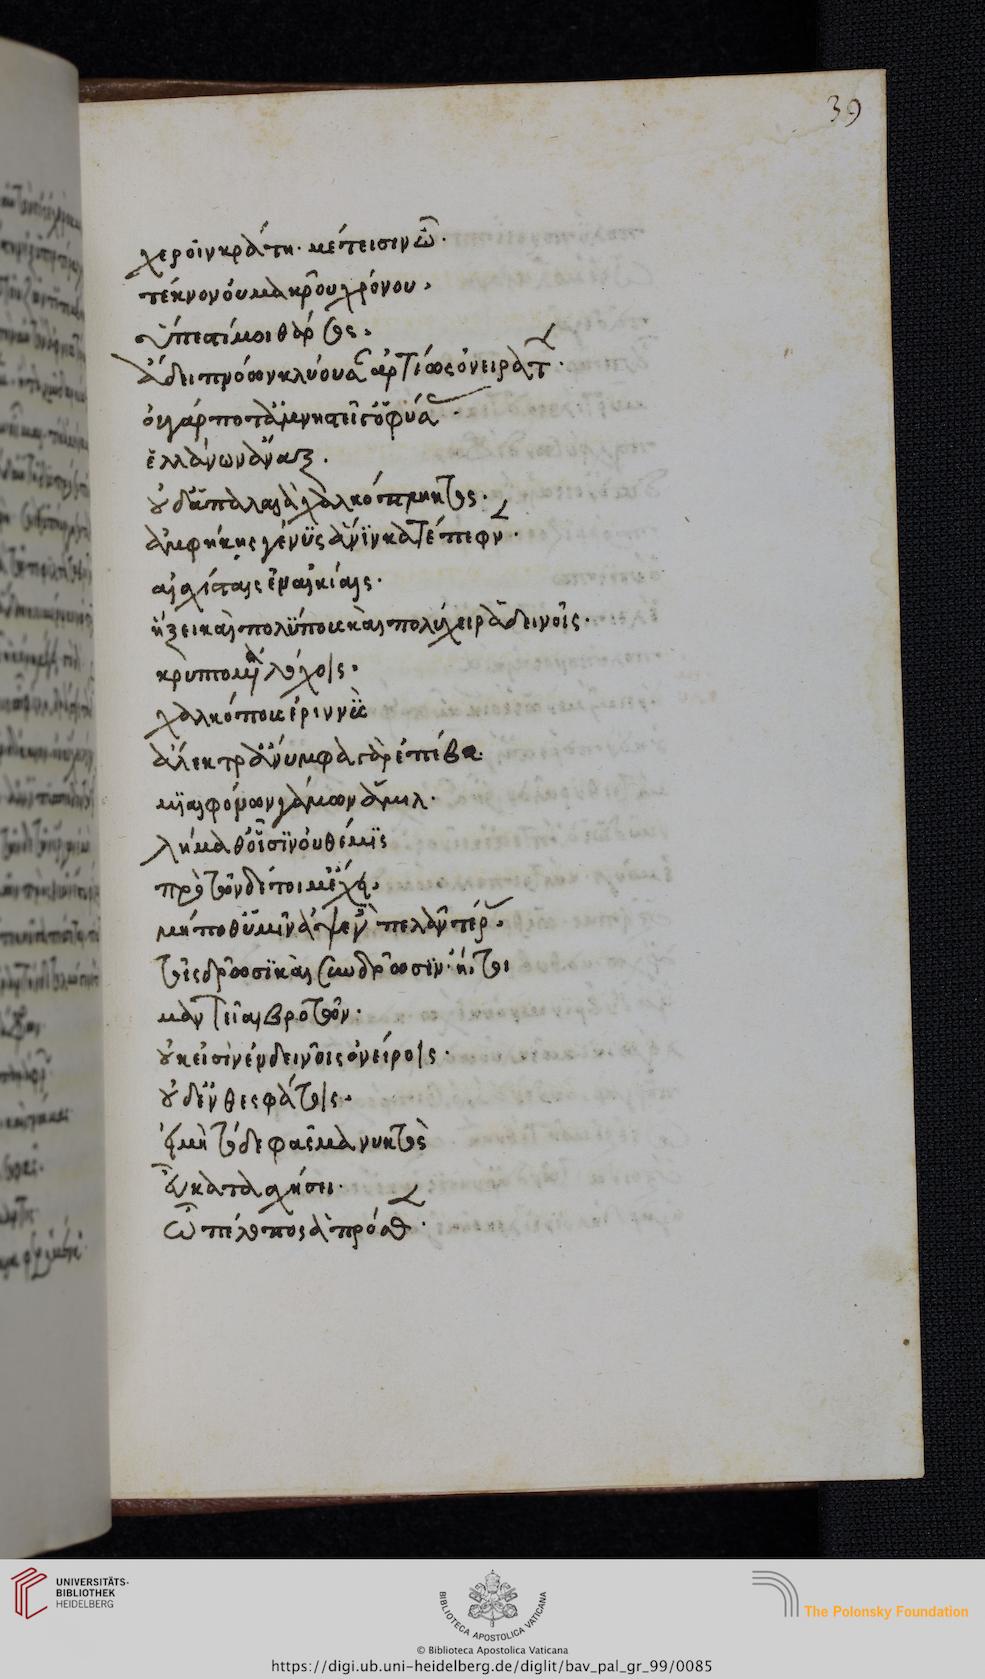 39
χεροῖν κράτη· μέτεισιν ὦ·
τέκνον οὐ μακροῦ χρόνου·
ὕπεστί μοι θάρσος·
ἁδυπνόων κλύουσαν ἀρτίως ὀνειράτων·
οὐ γάρ ποτ' ἀμνηστεῖ γ' ὁ φύσας
ἑλλάνων ἄναξ·
οὐδ' ἁ παλαιὰ χαλκόπληκτος·
ἀμφήκης γένυς ἅ νιν κατέπεφνεν·
αἰσχίσταις ἐν αἰκίαις·
ἥξει καὶ πολύπους καὶ πολύχειρ ἁ δεινοῖς·
κρυπτομένα λόχοις·
χαλκόπους ἐριννύς
ἄλεκτρ' ἄνυμφα γὰρ ἐπέβα
μιαιφόνων γάμων ἁμιλ·
λήμαθ' οἷσιν οὐ θέμις
πρὸ τῶνδέ τοι μ' ἔχει·
μήποθ' ὑμῖν ἀψεγὲς πελᾶν τέρας·
τοῖς δρῶσι καὶ συνδρῶσιν· ἤτοι
μαντεῖαι βροτῶν·
οὐκ εἰσὶν ἐν δεινοῖς ὀνείροις·
οὐδ' ἐν θεσφάτοις·
εἰ μὴ τόδε φάσμα νυκτὸς
εὖ κατασχήσει·
ὦ πέλοπος ἁ πρόσθεν·
UNIVERSITÄTS-
BIBLIOTHEK
HEIDELBERG
BIBLIOTECA APOSTOLICA VATICANA
The Polonsky Foundation
© Biblioteca Apostolica Vaticana
https://digi.ub.uni-heidelberg.de/diglit/bav_pal_gr_99/0085